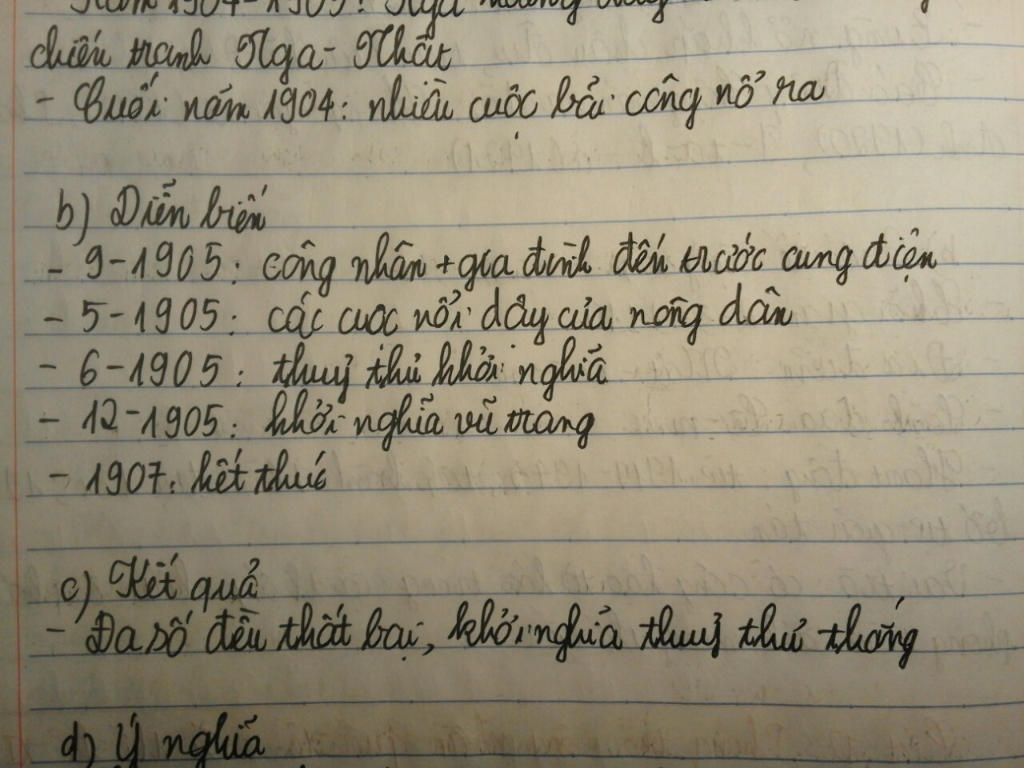 Năm 1904-1905: Nga hoàng đẩy
chiến tranh Nga-Nhật
- Cuối năm 1904: nhiều cuộc bãi công nổ ra
b) Diễn biến
- 9-1905: công nhân + gia đình đến trước cung điện
- 5-1905: các cuộc nổi dậy của nông dân
- 6-1905: thuỷ thủ khởi nghĩa
- 12-1905: khởi nghĩa vũ trang
- 1907: kết thúc
c) Kết quả
- Đa số đều thất bại, khởi nghĩa thuỷ thủ thắng
d) Ý nghĩa